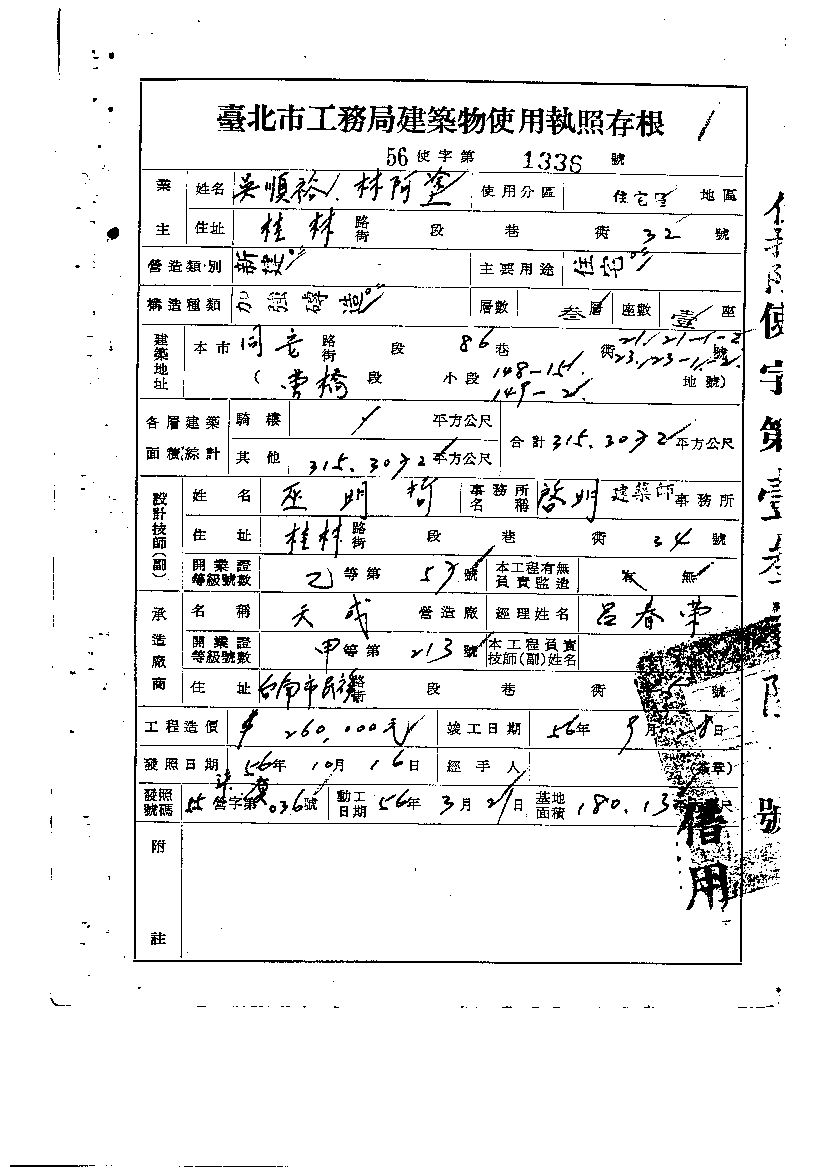 臺北市工務局建築物使用執照存根
56 使字第 1336 號
業主 姓名 吳順裕、林阿塗 使用分區 住宅區 地區
住址 桂林 路街 段 巷 衖 32 號
營造類別 新建 主要用途 住宅
構造種類 加強磚造 層數 叁層 座數 壹座
建築地址 本市 同安 路街 段 86 巷 衖 21/21-1-2 23/23-1-2 號
( 段 小段 148-151 149-2 地號)
各層建築面積綜計 騎樓 平方公尺 合計 315.3072 平方公尺
其他 315.3072 平方公尺
設計技師(副) 姓名 巫明哲 事務所名稱 啓明建築師事務所
住址 桂林 路街 段 巷 衖 34 號
開業證等級號數 乙等第 號 本工程有無負責監造 有 無
承造廠商 名稱 天成 營造廠 經理姓名 呂春榮
開業證等級號數 甲等第 213 號 本工程負責技師(副)姓名
住址 台南市民 路街 段 巷 衖 號
工程造價 $ 260,000元 竣工日期 56年 9月 28日
發照日期 56年 10月 16日 經手人 蓋章)
發照號碼 55 營字第 036 號 動工日期 56年 3月 21日 基地面積 180.13
附註
借用
使字第壹叁
號